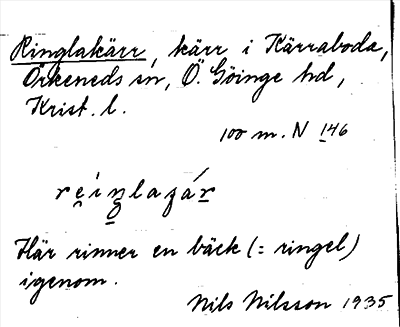 Ringlakärr, kärr i Kärraboda,
Örkeneds sn, Ö. Göinge hd,
Krist. l.
100 m. N 146
Här rinner en bäck (= ringel)
igenom.
Nils Nilsson 1935